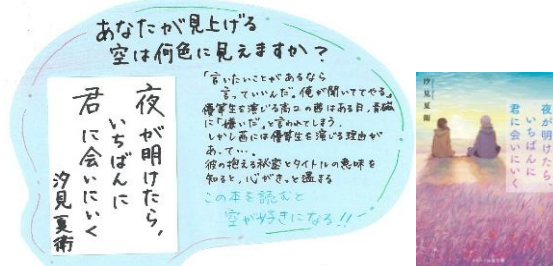 あなたが見上げる
空は何色に見えますか?
夜が明けたら、
いちばんに
君に会いにいく
汐見夏衛
「言いたいことがあるなら
言っていいんだ。俺が聞いててやる。」
優等生を演じる高2の茜はある日、青磁
に「嫌いだ」と言われてしまう。
しかし茜には優等生を演じる理由が
あって…。
彼の抱える秘密とタイトルの意味を
知ると、心がきっと温まる
この本を読むと
空が好きになる!!
汐見夏衛
夜が明けたら
いちばんに
君に会いにいく